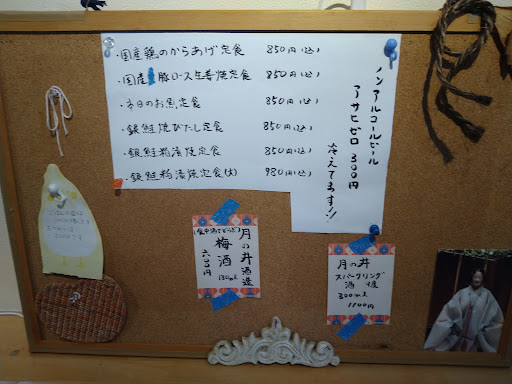 ・国産鶏のからあげ定食 850円(込)
・国産豚ロース生姜焼定食 850円(込)
・本日のお魚定食 850円(込)
・銀鮭焼びたし定食 850円(込)
・銀鮭粕漬焼定食 850円(込)
・銀鮭粕漬焼定食(大) 980円(込)
ノンアルコールビール
アサヒゼロ 300円
冷えてます!!
月の井酒造
梅酒 180ml
六〇〇円
月の井
スパークリング
酒
300ml
1100円